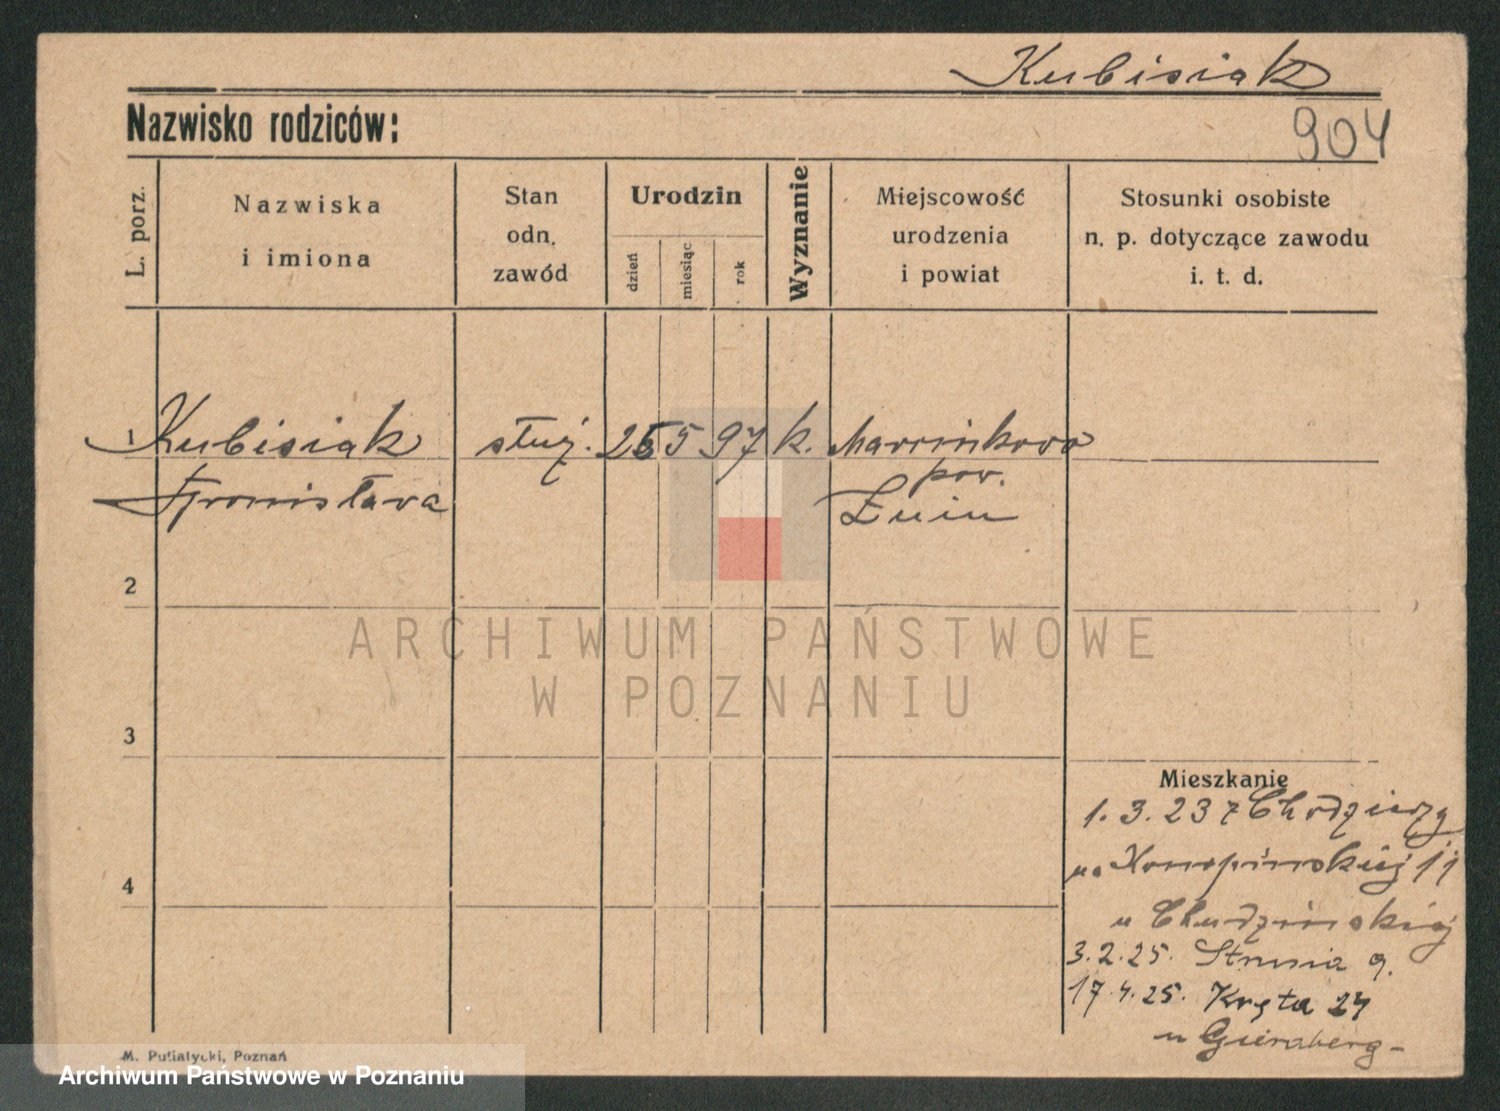 Kubisiak
Nazwisko rodziców:
904
L. porz.
Nazwiska
i imiona
Stan
odn.
zawód
Urodzin
dzień
miesiąc
rok
Wyznanie
Miejscowość
urodzenia
i powiat
Stosunki osobiste
n. p. dotyczące zawodu
i. t. d.
1 Kubisiak służ. 5 97 k. Marcinkowo
Bronisława pow.
Żnin
2
3
4
ARCHIWUM PAŃSTWOWE
W POZNANIU
Mieszkanie
1. 3. 23 z Chodzieży
na Konopińskiej 11
u Chudzińskiej
3. 2. 25. 9.
17. 4. 25. Kręta 24
u
M. Putiatycki, Poznań
Archiwum Państwowe w Poznaniu